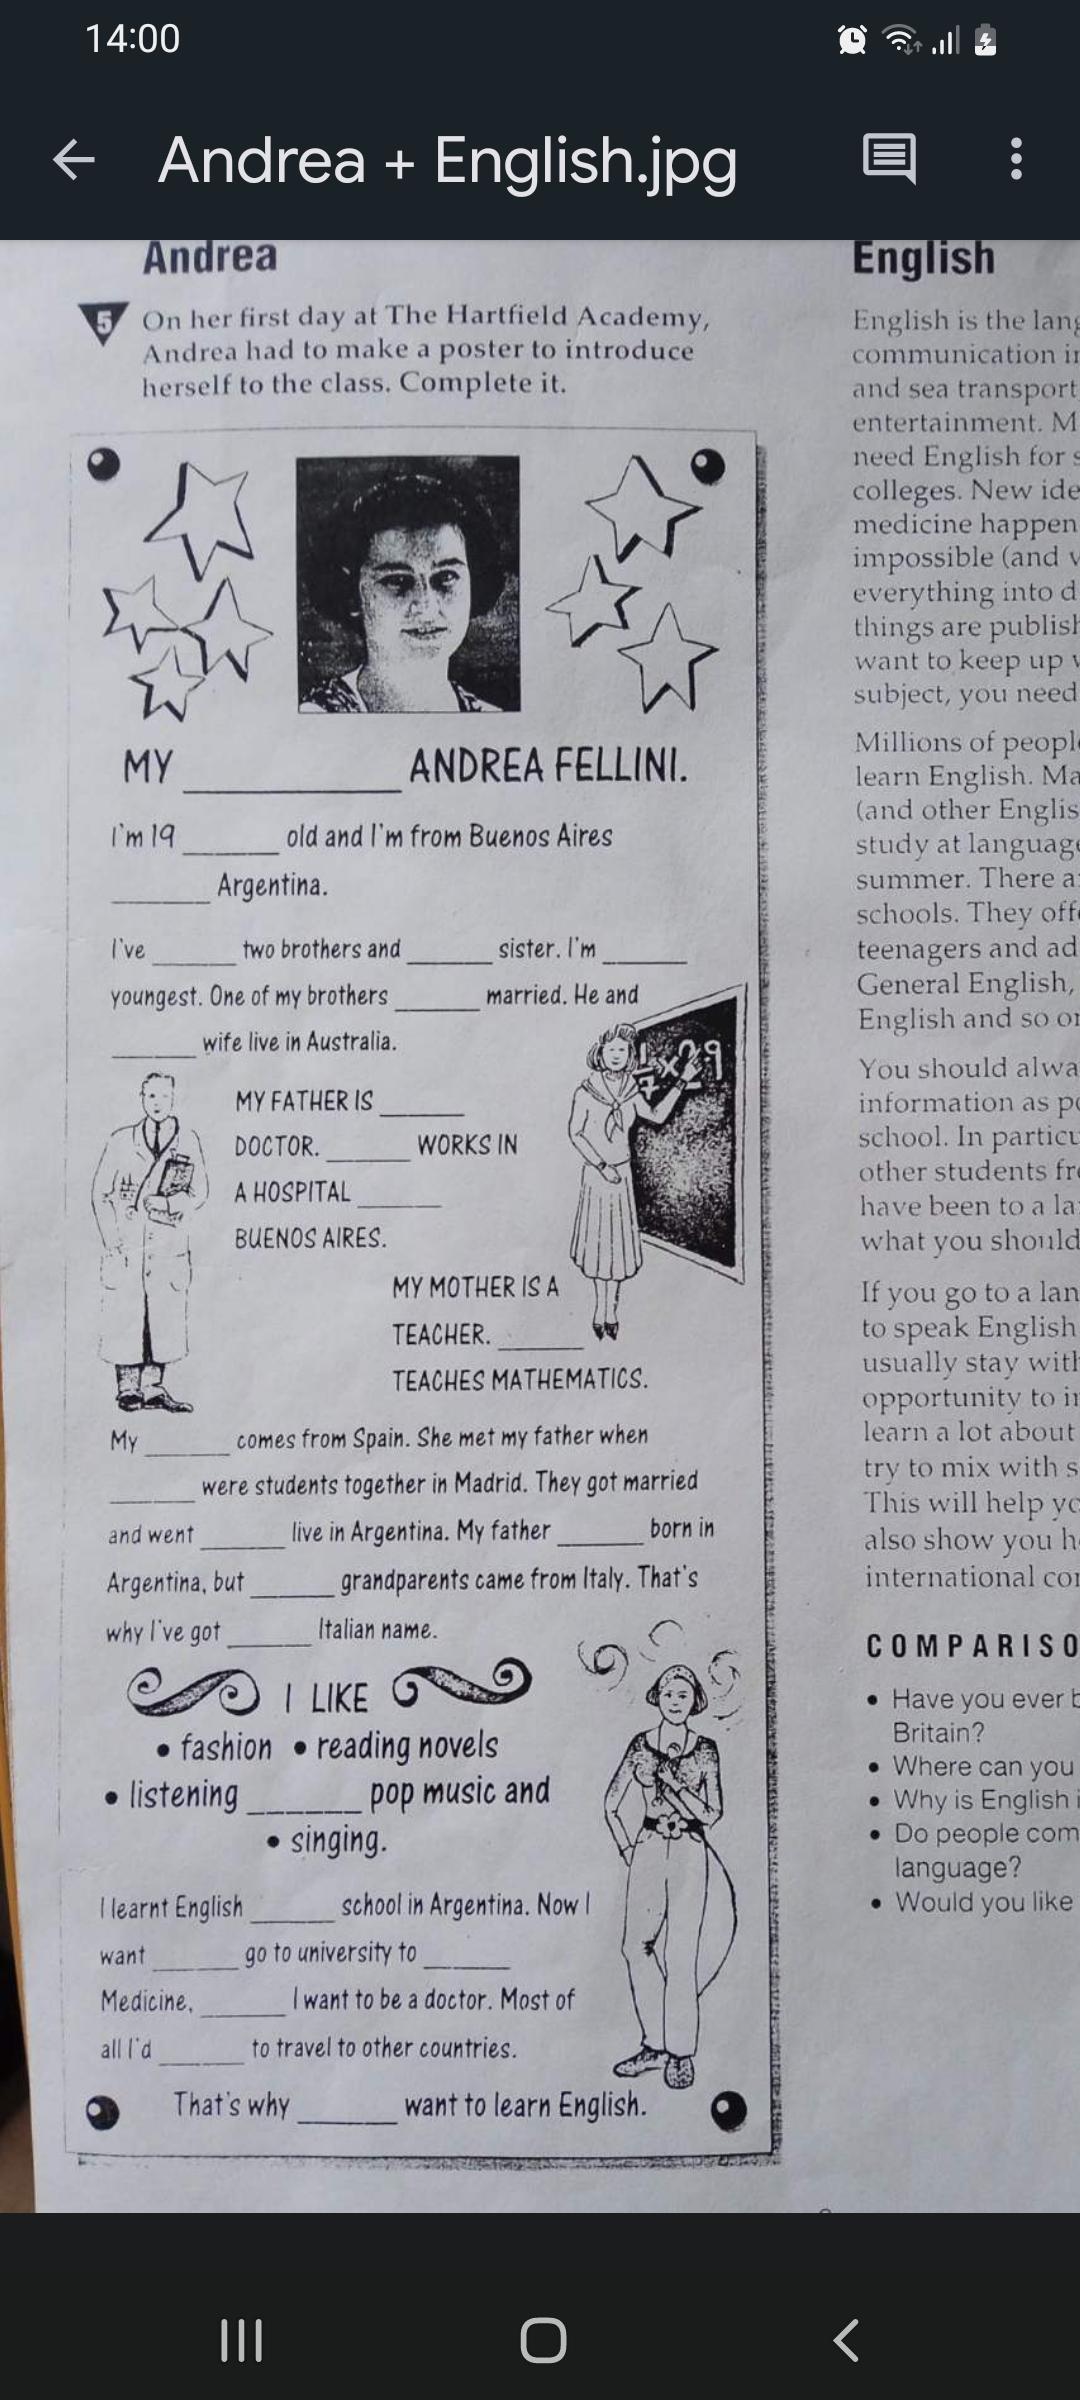 14:00
Andrea + English.jpg
Andrea
5 On her first day at The Hartfield Academy,
Andrea had to make a poster to introduce
herself to the class. Complete it.
MY ________ ANDREA FELLINI.
I'm 19 ______ old and I'm from Buenos Aires
______ Argentina.
I've ______ two brothers and ______ sister. I'm ______
youngest. One of my brothers ______ married. He and
______ wife live in Australia.
1/7 x 29
MY FATHER IS ______
DOCTOR. ______ WORKS IN
A HOSPITAL ______
BUENOS AIRES.
MY MOTHER IS A
TEACHER. ______
TEACHES MATHEMATICS.
My ______ comes from Spain. She met my father when
______ were students together in Madrid. They got married
and went ______ live in Argentina. My father ______ born in
Argentina, but ______ grandparents came from Italy. That's
why I've got ______ Italian name.
I LIKE
• fashion • reading novels
• listening ______ pop music and
• singing.
I learnt English ______ school in Argentina. Now I
want ______ go to university to ______
Medicine, ______ I want to be a doctor. Most of
all I'd ______ to travel to other countries.
That's why ______ want to learn English.
English
English is the
communication
and sea transport
entertainment.
need English for
colleges. New
medicine happen
impossible (and
everything into
things are
want to keep up
subject, you need
Millions of
learn English.
(and other
study at
summer. There
schools. They
teenagers and
General English,
English and so
You should
information as
school. In
other students
have been to a
what you should
If you go to a
to speak English
usually stay
opportunity to
learn a lot about
try to mix with
This will help
also show you
international
COMPARISO
• Have you ever
Britain?
• Where can you
• Why is English
• Do people
language?
• Would you like